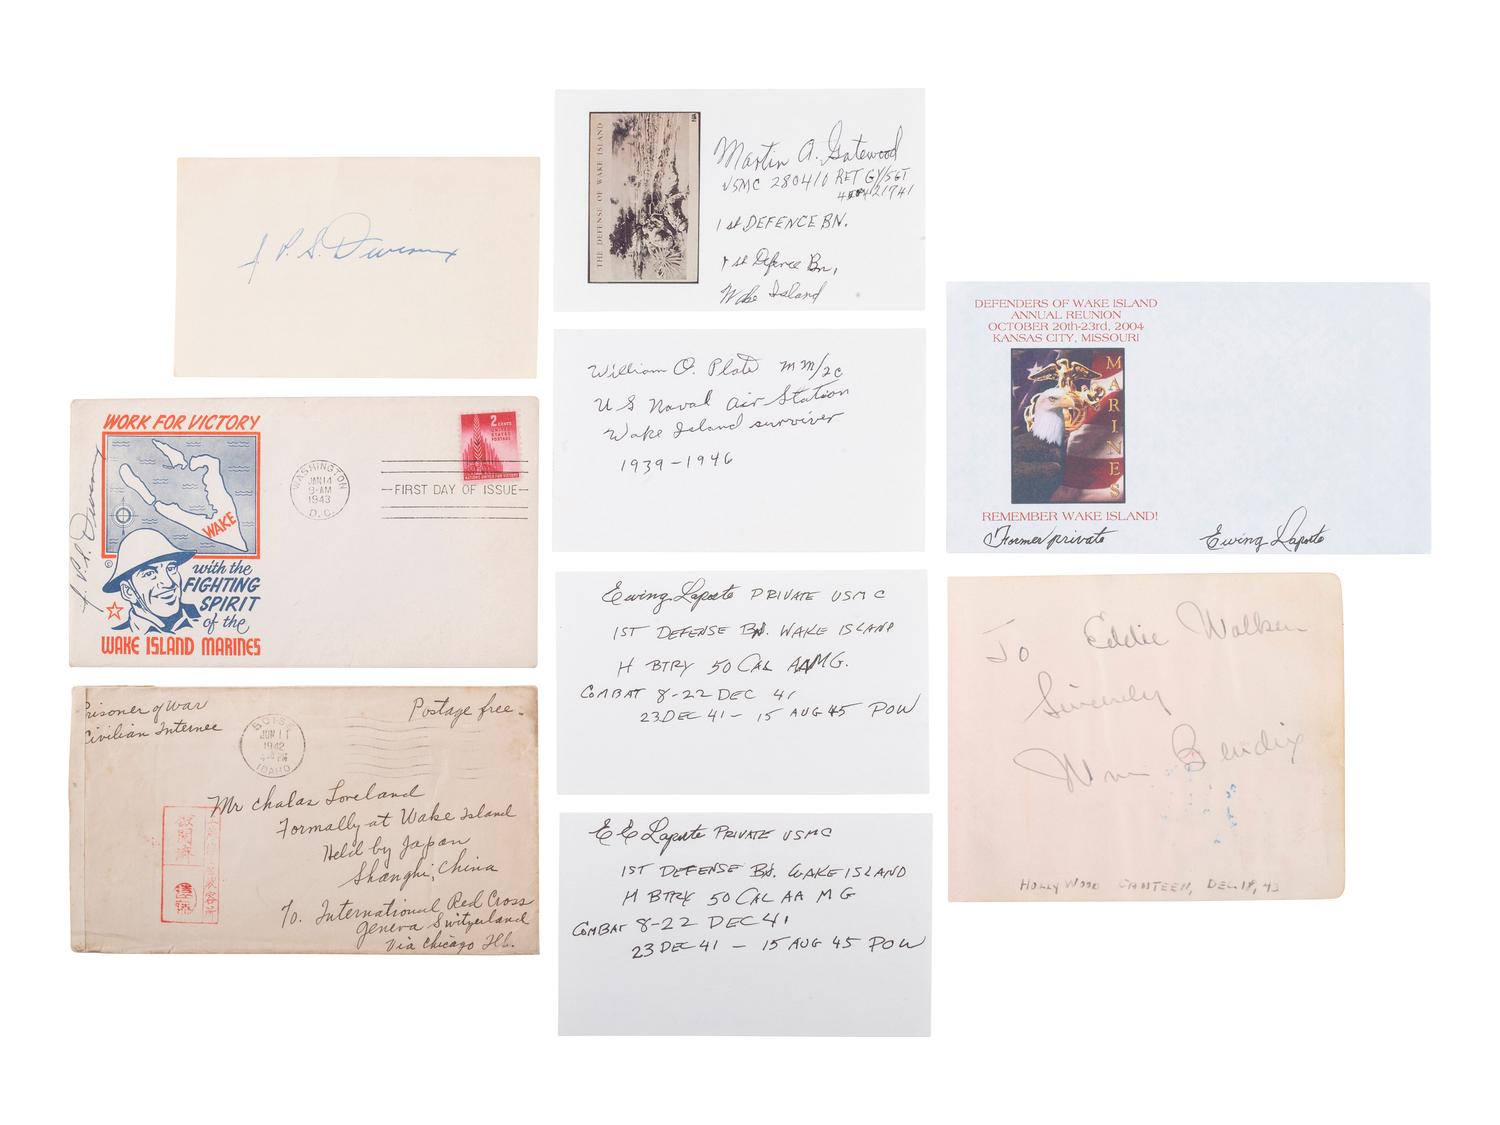 J. P. S. Devereux
WORK FOR VICTORY
WAKE
with the
FIGHTING
SPIRIT
of the
WAKE ISLAND MARINES
J. P. S. Devereux
WASHINGTON
JAN 14
9-AM
1943
D.C.
FIRST DAY OF ISSUE
2 CENTS
UNITED
STATES
POSTAGE
Prisoner of War
Civilian Internee
BOISE
JUN 11
1942
4-PM
IDAHO
Postage free.
Mr Chalas Loveland
Formally at Wake Island
Held by Japan
Shanghi, China
To. International Red Cross
Geneva Switzerland
Via Chicago Ill.
THE DEFENSE OF WAKE ISLAND
Martin A. Gatewood
USMC 280410 RET GY/SGT
1st DEFENCE BN.
1st Defence Bn,
Wake Island
William O. Plate MM/2c
US Naval Air Station
Wake Island surviver
1939-1946
Ewing Laporte PRIVATE USMC
1ST DEFENSE BN. WAKE ISLAND
H BTRY 50 CAL AAMG.
COMBAT 8-22 DEC 41
23 DEC 41 - 15 AUG 45 POW
E E Laporte PRIVATE USMC
1ST DEFENSE BN. WAKE ISLAND
H BTRY 50 CAL AA MG
COMBAT 8-22 DEC 41
23 DEC 41 - 15 AUG 45 POW
DEFENDERS OF WAKE ISLAND
ANNUAL REUNION
OCTOBER 20th-23rd, 2004
KANSAS CITY, MISSOURI
MARINES
REMEMBER WAKE ISLAND!
Former private
Ewing Laporte
To Eddie Walker
Sincerely
Wm Bendix
HOLLYWOOD CANTEEN, DEC. 18, 43